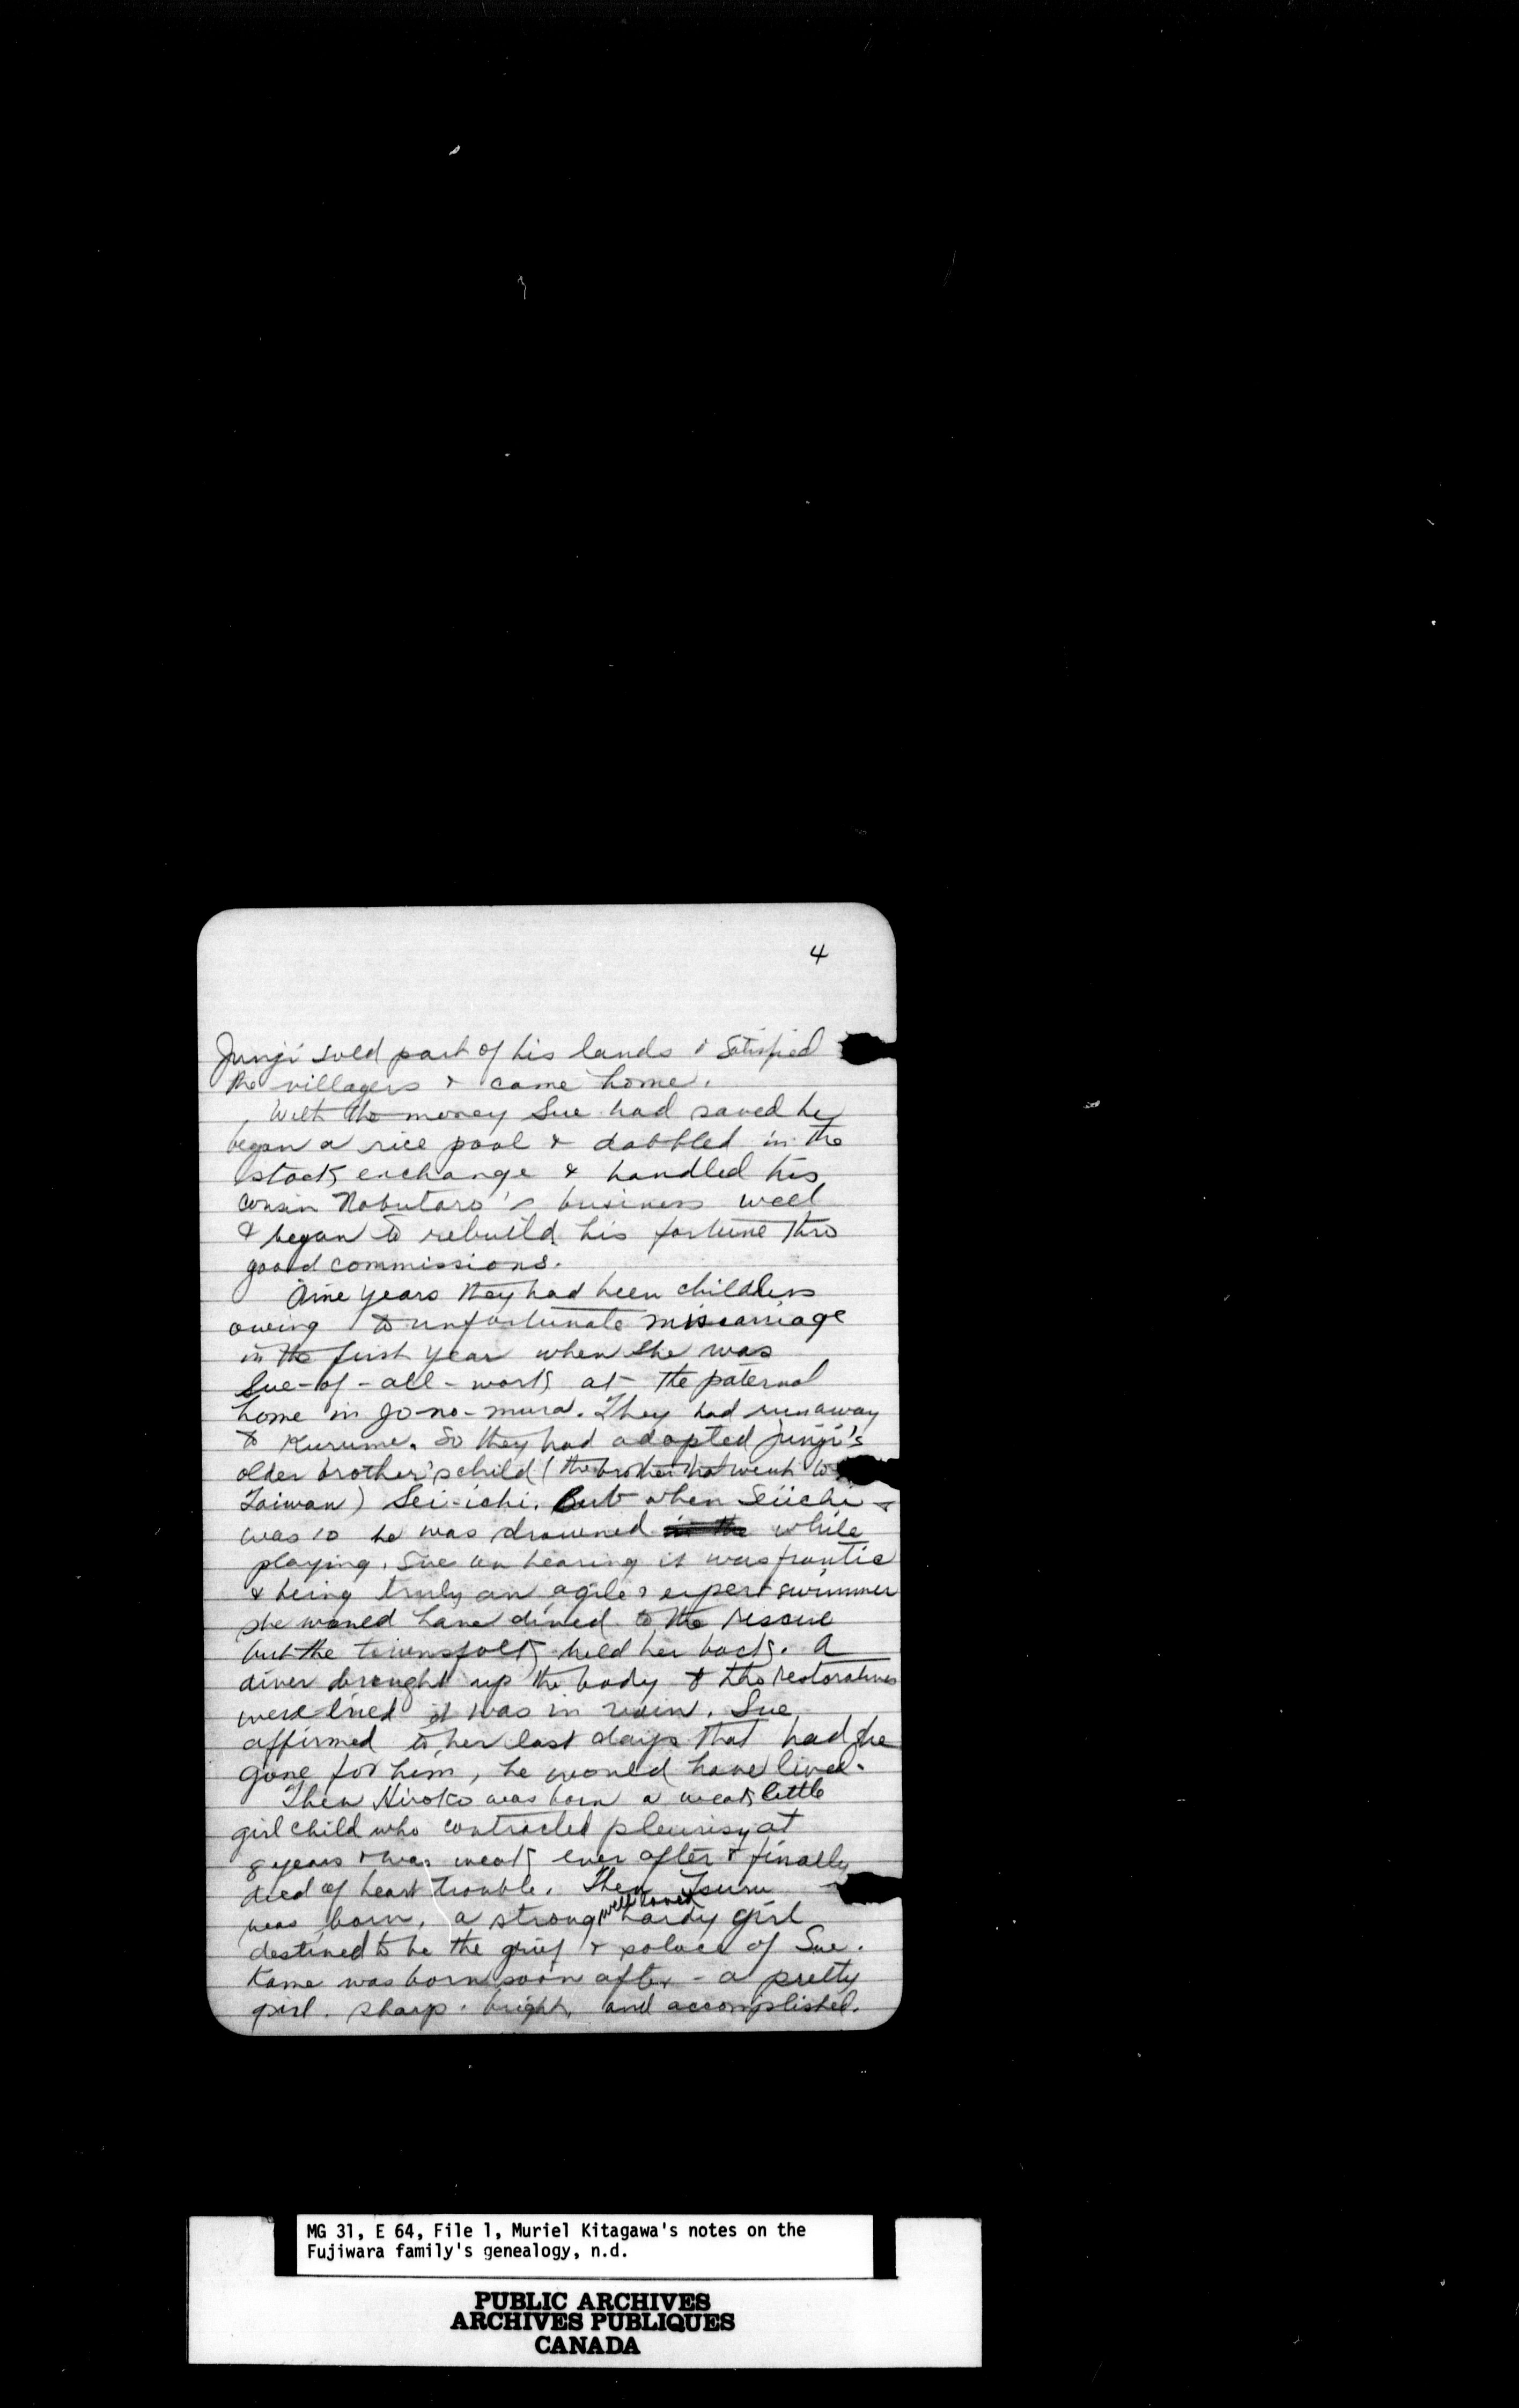 4
Junji sold part of his lands & satisfied
the villagers & came home.
With the money Sue had saved he
began a rice pool & dabbled in the
stock exchange & handled his
cousin Nobutaro's business well
& began to rebuild his fortune thro
good commissions.
Nine years they had been childless
owing to unfortunate miscarriage
in the first year when she was
Sue-of-all-work at the paternal
home in Jo-no-mura. They had run away
to Kurume. So they had adopted Junji's
older brother's child (the brother that went to
Taiwan) Sei-ichi. But when Seiichi
was 10 he was drowned in the while
playing. Sue on hearing it was frantic
& being truly an agile & expert swimmer
she would have dived to the rescue
but the townsfolk held her back. A
diver brought up the body & tho restoratives
were tried it was in vain. Sue
affirmed to her last days that had she
gone for him, he would have lived.
Then Hiroko was born a weak little
girl child who contracted pleurisy at
8 years & was weak ever after & finally
died of heart trouble. Then Tsuru
was born, a strong, well loved hardy girl
destined to be the grief & solace of Sue.
Kame was born soon after - a pretty
girl. sharp. bright, and accomplished.
MG 31, E 64, File 1, Muriel Kitagawa's notes on the
Fujiwara family's genealogy, n.d.
PUBLIC ARCHIVES
ARCHIVES PUBLIQUES
CANADA